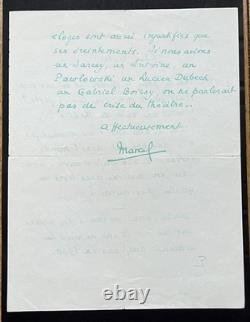 éloges sont aussi injustifiés que
ses éreintements. Si nous avions
un Sarcey, un Lemaître, un
Pawlowski un Lucien Dubech
un Gabriel Boissy on ne parlerait
pas de crise du théâtre..
affectueusement
Marcel
3